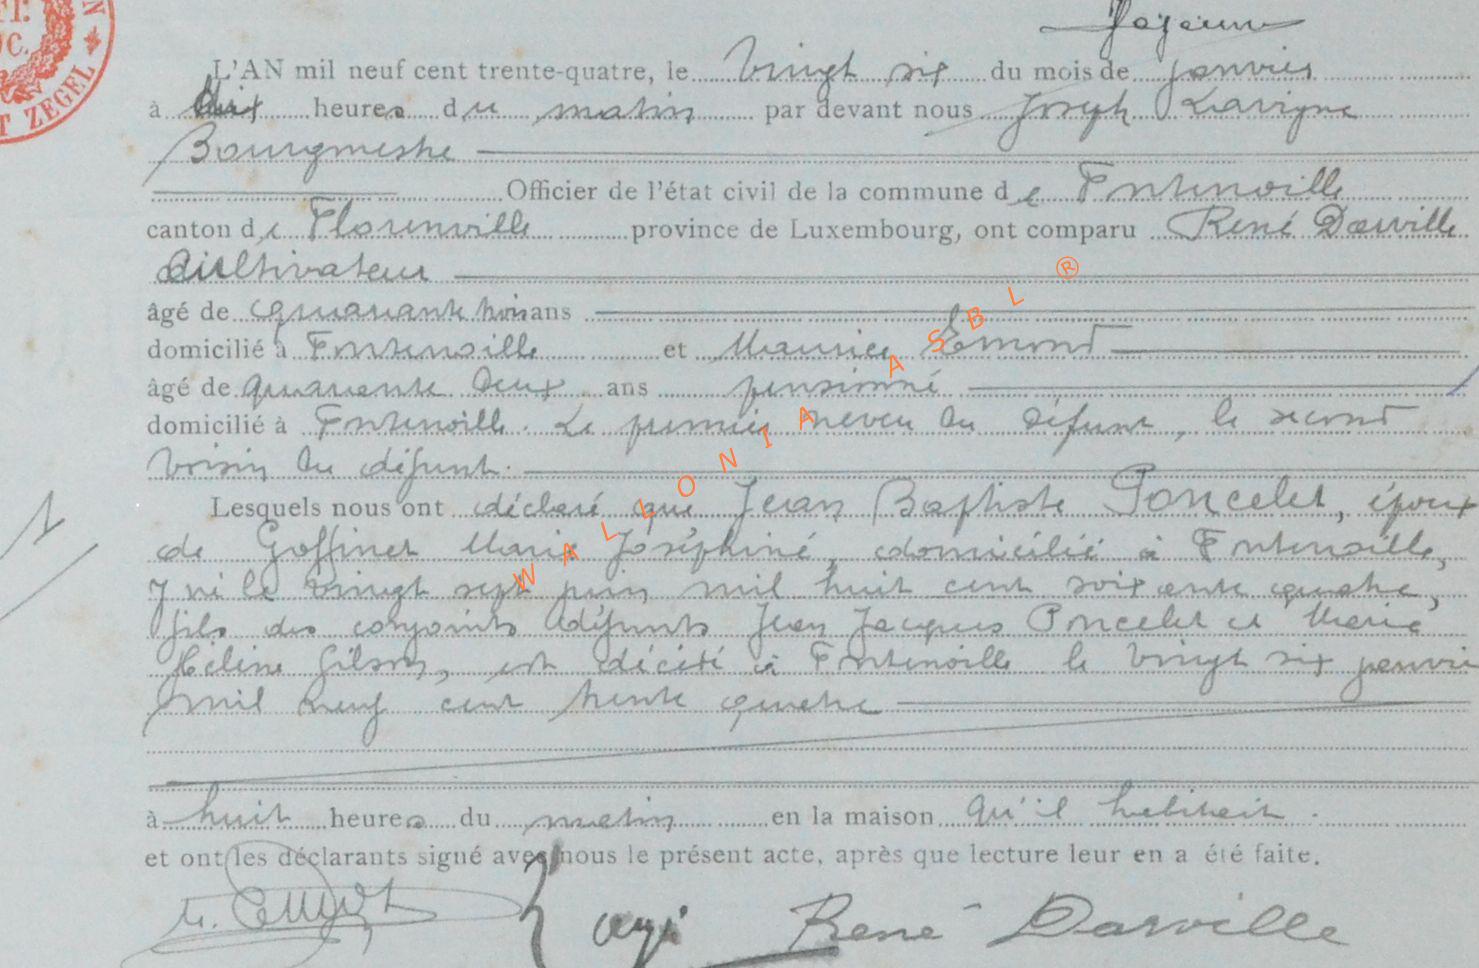 L'AN mil neuf cent trente-quatre, le vingt six du mois de janvier
à dix heures du matin par devant nous Joseph Lavigne
Bourgmestre
Officier de l'état civil de la commune de Fontenoille
canton de Florenville province de Luxembourg, ont comparu René Darville
Cultivateur
âgé de quarante trois ans
domicilié à Fontenoille et Maurice Emond
âgé de quarante deux ans pensionné
domicilié à Fontenoille. Le premier neveu du défunt, le second
voisin du défunt.
Lesquels nous ont déclaré que Jean Baptiste Poncelet, époux
de Goffinet Marie Joséphine, domicilié à Fontenoille,
y né le vingt sept juin mil huit cent soixante quatre,
fils des conjoints défunts Jean Jacques Poncelet et Marie
Hélène Gilson, est décédé à Fontenoille le vingt six janvier
mil neuf cent trente quatre
à huit heures du matin en la maison qu'il habitait.
et ont les déclarants signé avec nous le présent acte, après que lecture leur en a été faite.
René Darville
T ZEGEL
WALLONIA ASBL ®